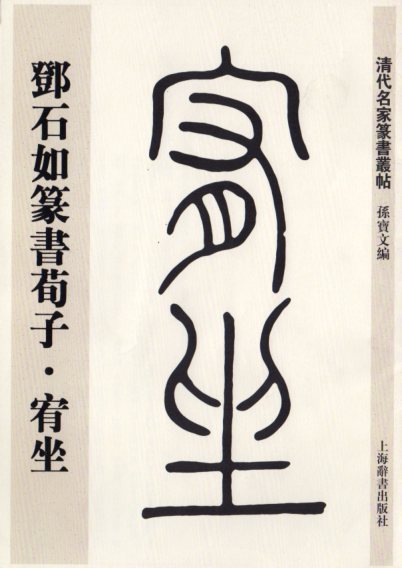 清代名家篆書叢帖
孫寶文編
上海辭書出版社
宥坐
鄧石如篆書荀子·宥坐